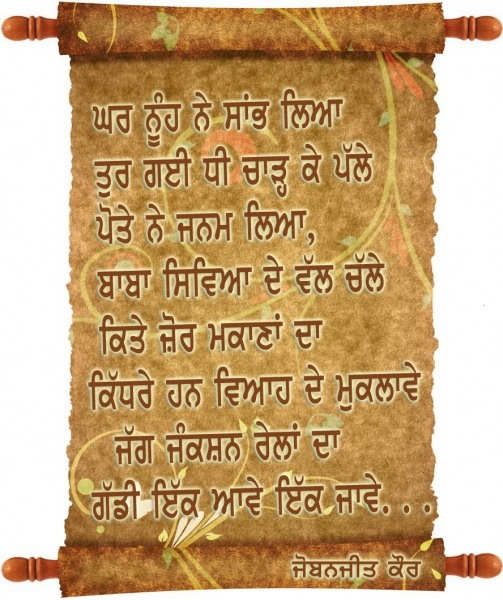 ਘਰ ਨੂੰਹ ਨੇ ਸਾਂਭ ਲਿਆ
ਤੁਰ ਗਈ ਧੀ ਚਾੜ੍ਹ ਕੇ ਪੱਲੇ
ਪੋਤੇ ਨੇ ਜਨਮ ਲਿਆ,
ਬਾਬਾ ਸਿਵਿਆ ਦੇ ਵੱਲ ਚੱਲੇ
ਕਿਤੇ ਜ਼ੋਰ ਮਕਾਣਾਂ ਦਾ
ਕਿੱਧਰੇ ਹਨ ਵਿਆਹ ਦੇ ਮੁਕਲਾਵੇ
ਜੱਗ ਜੰਕਸ਼ਨ ਰੇਲਾਂ ਦਾ
ਗੱਡੀ ਇੱਕ ਆਵੇ ਇੱਕ ਜਾਵੇ. . .
ਜੋਬਨਜੀਤ ਕੌਰ